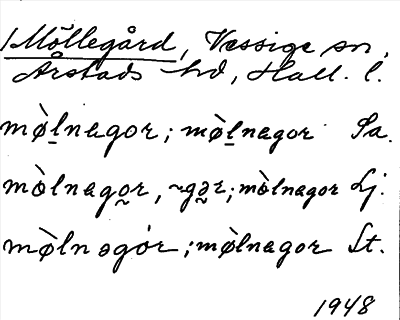 Möllegård, Vessige sn,
Årstads hd, Hall. l.
mø̀lnagor; mø̀lnagor Sa.
mòlnagor, ~gər; mòlnagor Lj.
mø̀lnəgór; mø̀lnagor St.
1948